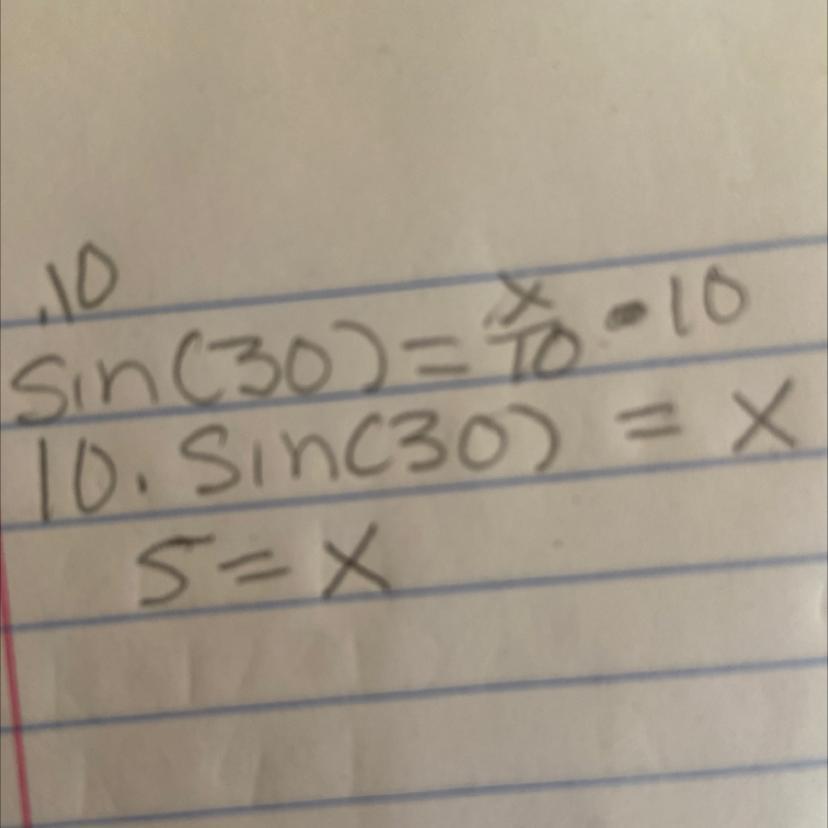 .10
sin(30) = x/10 · 10
10. sin(30) = x
5 = x